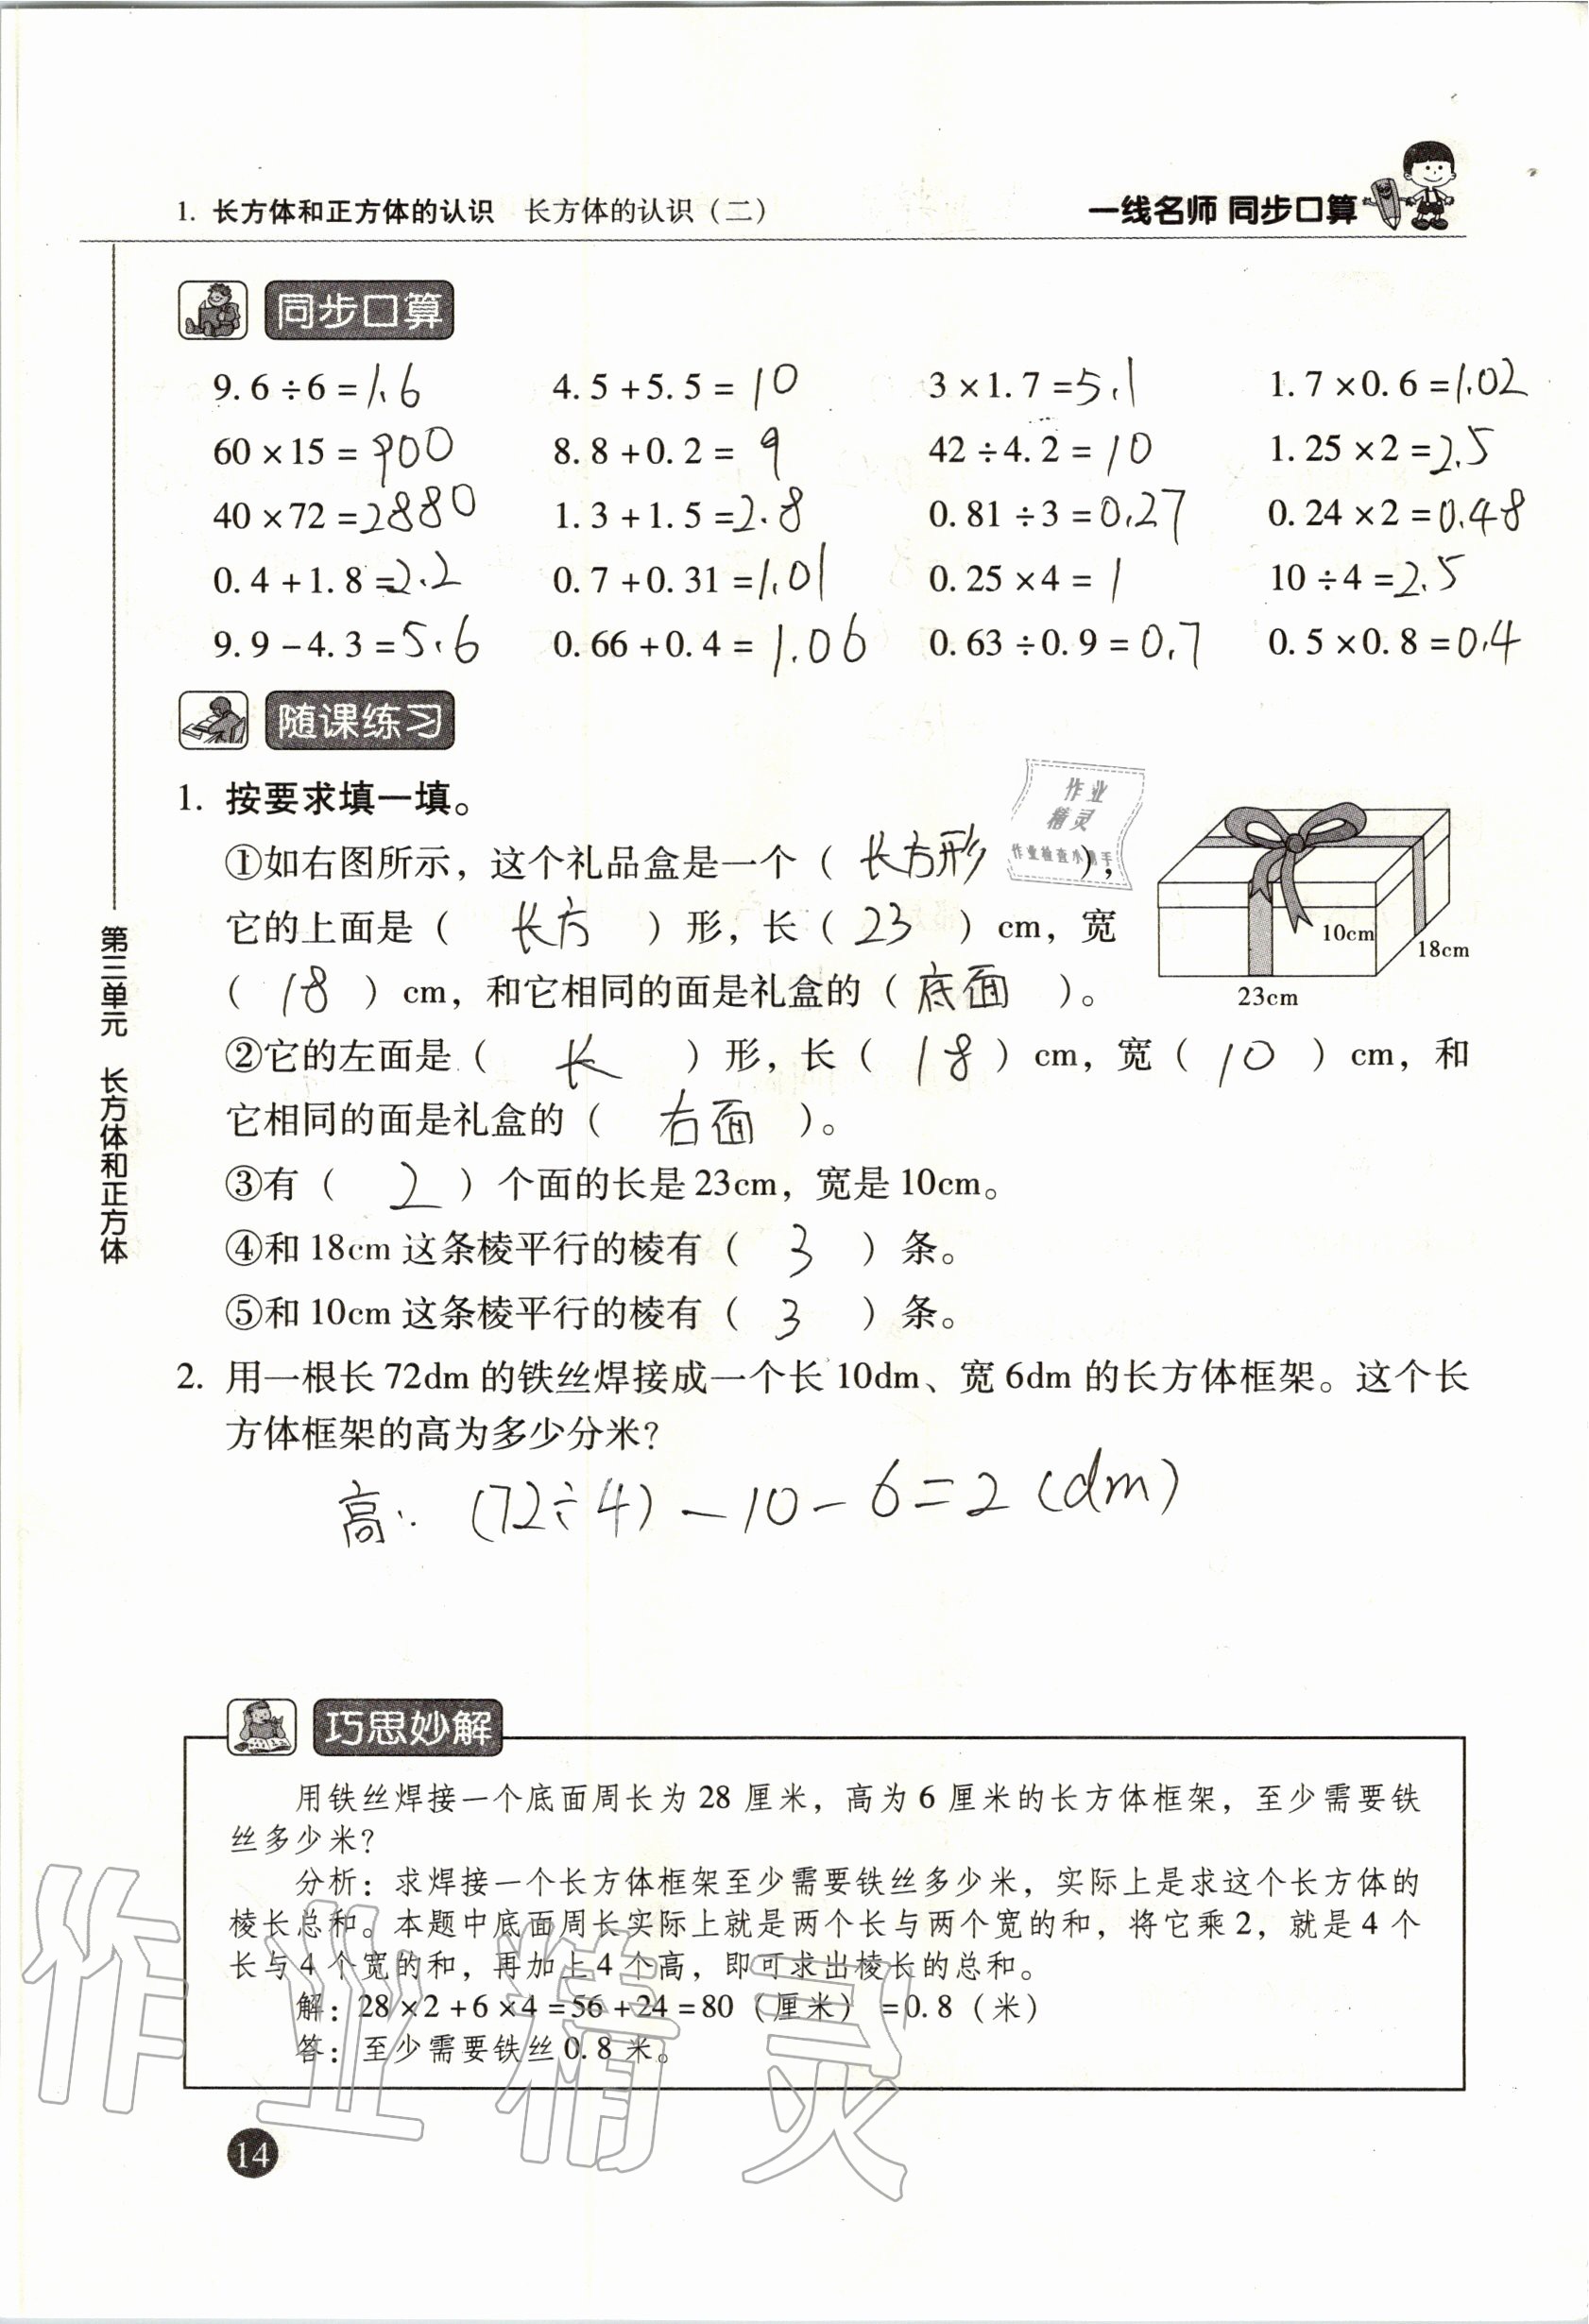 1. 长方体和正方体的认识 长方体的认识(二) 一线名师 同步口算
同步口算
9.6÷6=1.6 4.5+5.5=10 3×1.7=5.1 1.7×0.6=1.02
60×15=900 8.8+0.2=9 42÷4.2=10 1.25×2=2.5
40×72=2880 1.3+1.5=2.8 0.81÷3=0.27 0.24×2=0.48
0.4+1.8=2.2 0.7+0.31=1.01 0.25×4=1 10÷4=2.5
9.9-4.3=5.6 0.66+0.4=1.06 0.63÷0.9=0.7 0.5×0.8=0.4
随课练习
1. 按要求填一填。
①如右图所示,这个礼品盒是一个(长方形),
它的上面是(长方)形,长(23)cm,宽
(18)cm,和它相同的面是礼盒的(底面)。
②它的左面是(长)形,长(18)cm,宽(10)cm,和
它相同的面是礼盒的(右面)。
③有(2)个面的长是23cm,宽是10cm。
④和18cm这条棱平行的棱有(3)条。
⑤和10cm这条棱平行的棱有(3)条。
作业
精灵
作业检查小助手
10cm
18cm
23cm
2. 用一根长72dm的铁丝焊接成一个长10dm、宽6dm的长方体框架。这个长
方体框架的高为多少分米?
高: (72÷4)-10-6=2(dm)
巧思妙解
用铁丝焊接一个底面周长为28厘米,高为6厘米的长方体框架,至少需要铁
丝多少米?
分析:求焊接一个长方体框架至少需要铁丝多少米,实际上是求这个长方体的
棱长总和。本题中底面周长实际上就是两个长与两个宽的和,将它乘2,就是4个
长与4个宽的和,再加上4个高,即可求出棱长的总和。
解:28×2+6×4=56+24=80(厘米)=0.8(米)
答:至少需要铁丝0.8米。
作业精灵
14
第三单元 长方体和正方体